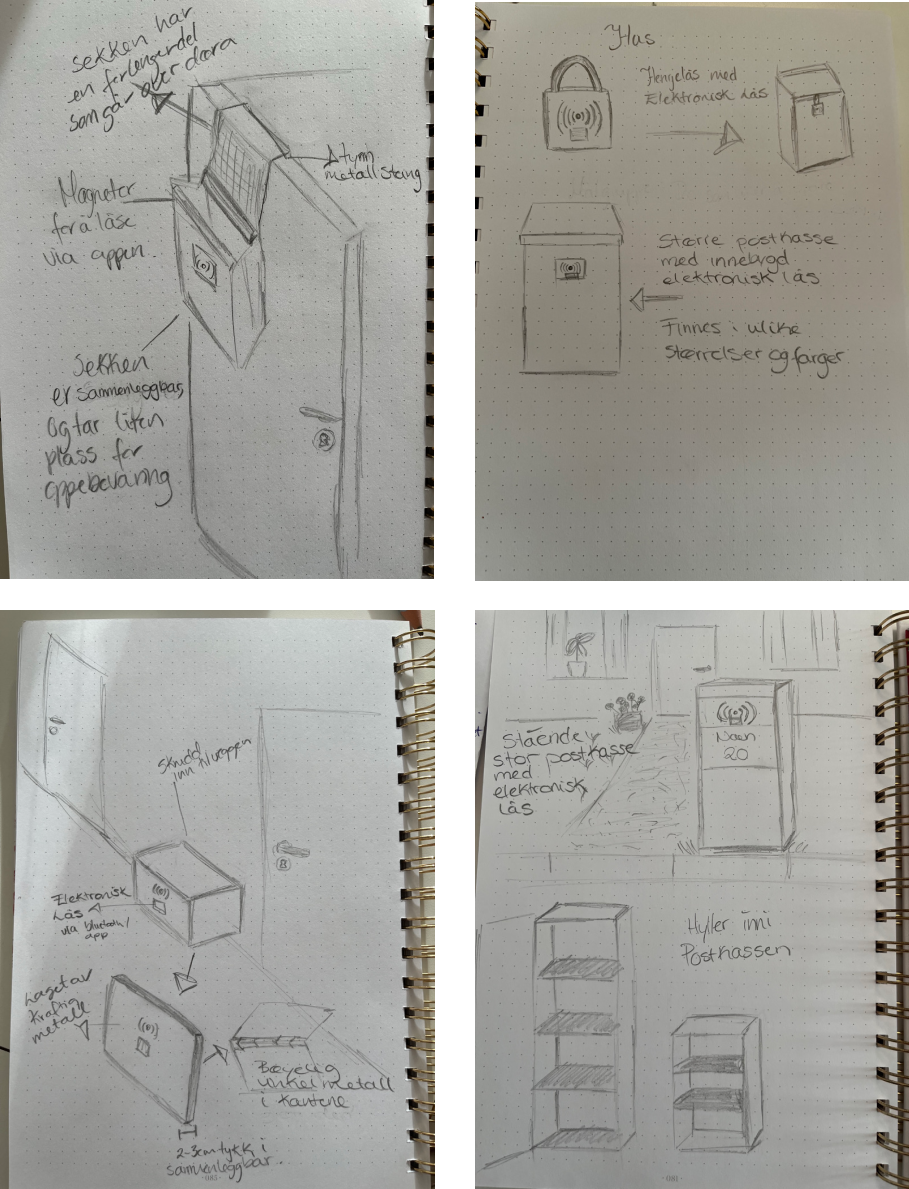 Sekken har
en forlengerdel
som går over døra
tynn
metallstang
Magneter
for å låse
via appen.
Sekken
er sammenleggbar,
og tar liten
plass for
oppebevaring
Hus
Hengelås med
Elektronisk Lås
Større postkasse
med innebygd
elektronisk lås
Finnes i ulike
størrelser og farger
inn
Elektronisk
Lås
via bluetooth/
app
Laget av
kraftig
metall
Bøyelig
vinkelmetall
i kantene
2-3cm tykk i
sammenleggbar.
Stående
stor postkasse
med
elektronisk
lås
Navn
20
Hyller inni
Postkassen